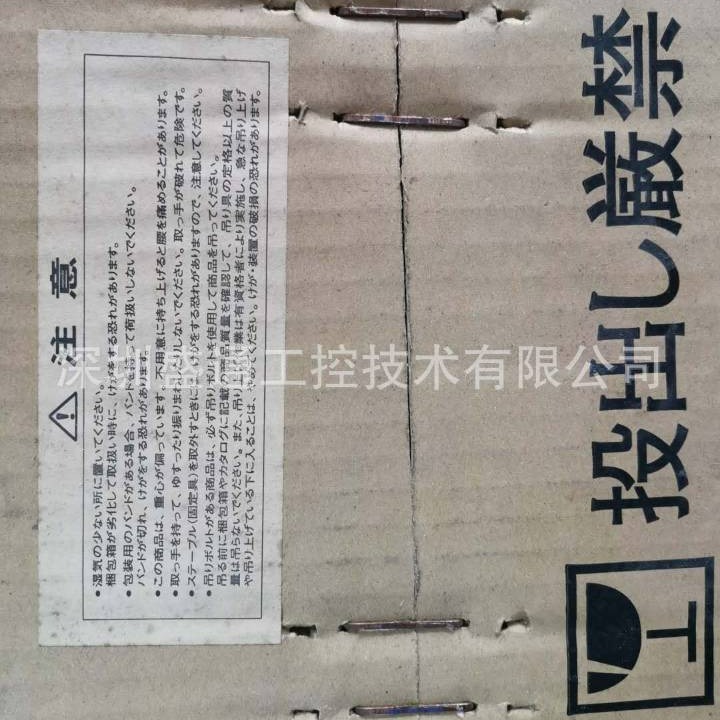 ⚠ 注意
•湿気の少ない所に置いてください。
梱包箱が劣化して取扱い時に、けがをする恐れがあります。
•包装用のバンドがある場合、バンドを持って荷扱いしないでください。
バンドが切れ、けがをする恐れがあります。
•この商品は、重心が偏っています。不用意に持ち上げると腰を痛めることがあります。
•取っ手を持って、ゆすったり振りまわしたりしないでください。取っ手が破れて危険です。
•ステープル(固定具)を取外すときに、けがをする恐れがありますので、注意してください。
•吊りボルトがある商品は、必ず吊りボルトを使用して商品を吊ってください。
吊る前に梱包箱やカタログに記載の商品質量を確認して、吊り具の定格以上の質
量は吊らないでください。また、吊り作業は有資格者により実施し、急な吊り上げ
や吊り上げている下に入ることは、やめてください。けが・装置の破損の恐れがあります。
投出し厳禁
深圳 工控技术有限公司